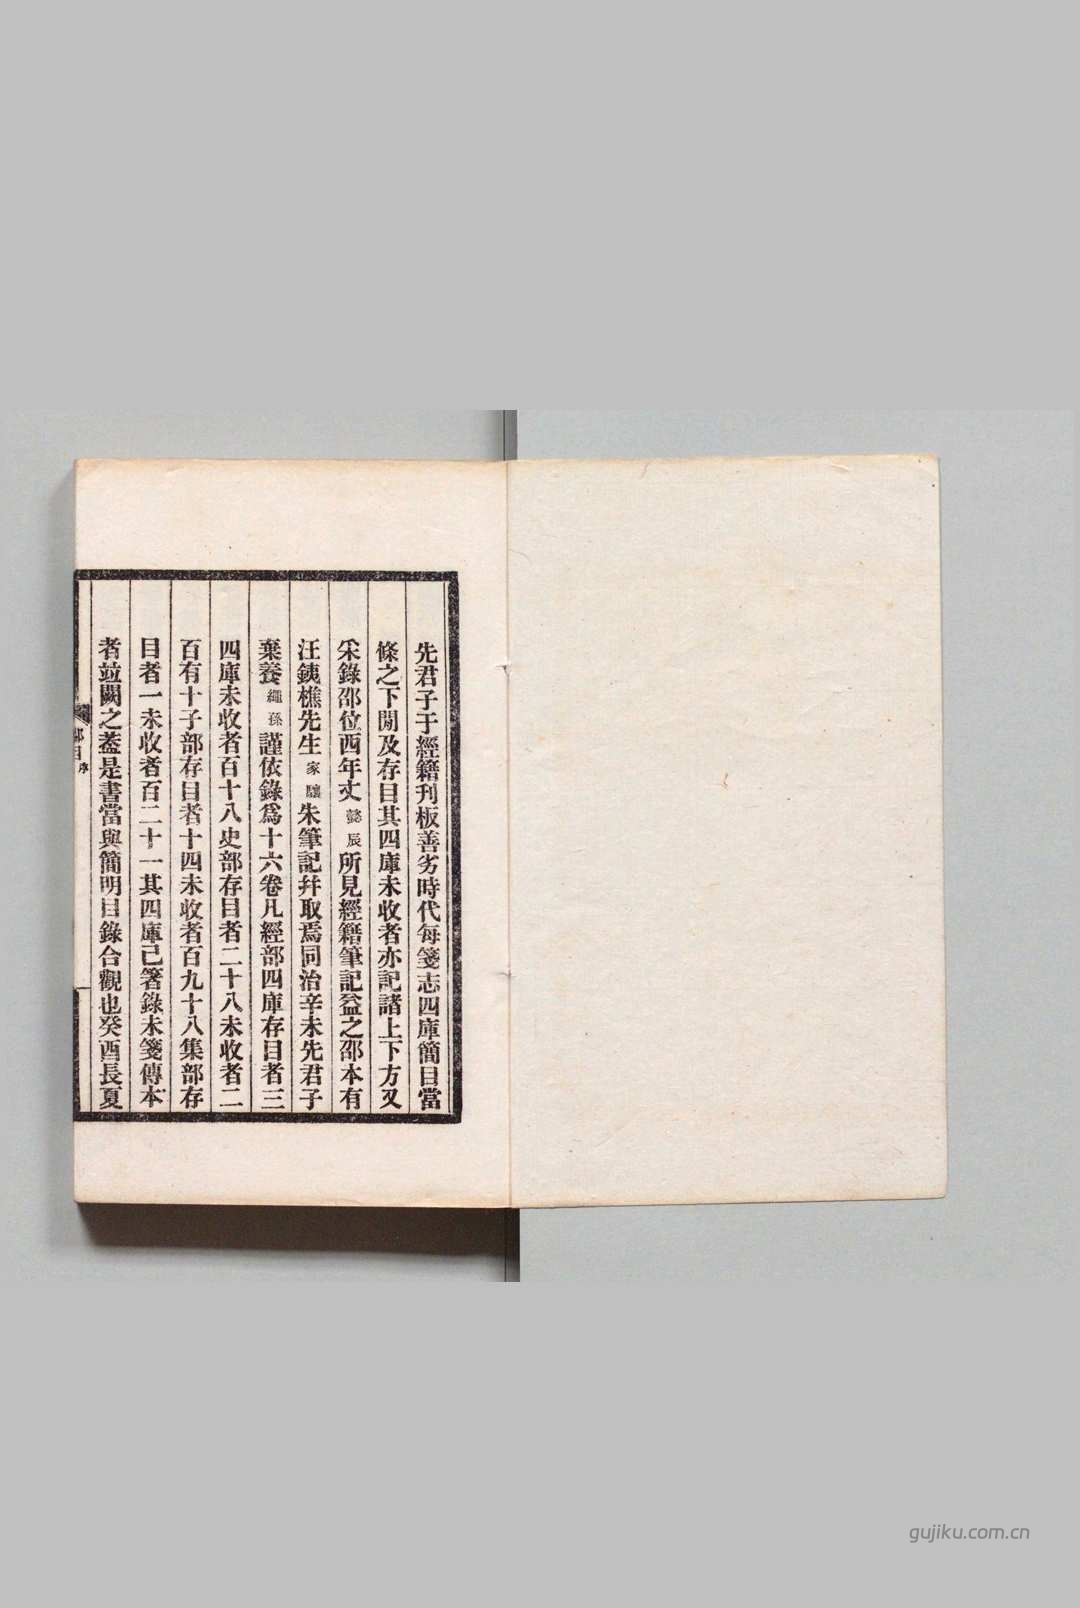 先君子于經籍刊板善劣時代每箋志四庫簡目當
條之下閒及存目其四庫未收者亦記諸上下方又
采錄邵位西年丈懿辰所見經籍筆記益之邵本有
汪鐵樵先生家驤朱筆記幷取焉同治辛未先君子
棄養繩孫謹依錄爲十六卷凡經部四庫存目者三
四庫未收者百十八史部存目者二十八未收者二
百有十子部存目者十四未收者百九十八集部存
目者一未收者百二十一其四庫已箸錄未箋傳本
者竝闕之蓋是書當與簡明目錄合觀也癸酉長夏
郘目序
一
gujiku.com.cn